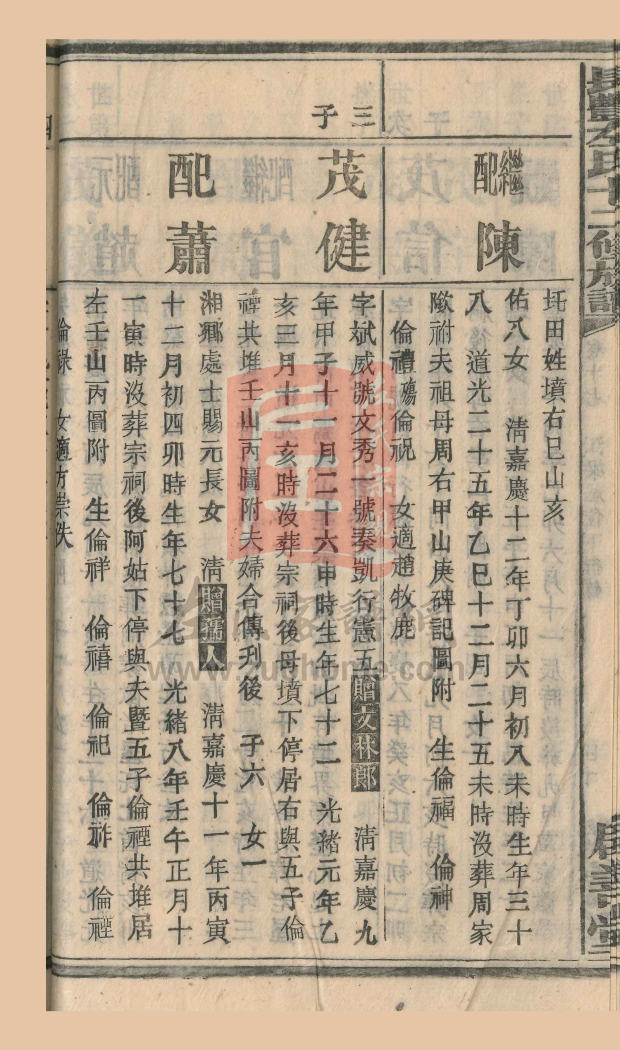 長豐左氏十二修族譜
繼配陳
圫田姓墳右巳山亥
佑八女 淸嘉慶十二年丁卯六月初八未時生年三十
八 道光二十五年乙巳十二月二十五未時沒葬周家
歐祔夫祖母周右甲山庚碑記圖附 生倫福 倫神
倫禮殤倫祝 女適趙牧鹿
三子
茂健
字斌威號文秀一號奏凱行憲五贈文林郎 淸嘉慶九
年甲子十一月二十六申時生年七十二 光緖元年乙
亥三月十一亥時沒葬宗祠後母墳下停居右與五子倫
禋共堆壬山丙圖附夫婦合傳刋後 子六 女一
配蕭
湘鄉處士賜元長女 淸贈孺人 淸嘉慶十一年丙寅
十二月初四卯時生年七十七 光緖八年壬午正月十
一寅時沒葬宗祠後阿姑下停與夫暨五子倫禋共堆居
左壬山丙圖附 生倫祥 倫禧 倫祀 倫祚 倫禋
倫祿 女適方崇
四
www.zuqhome.com